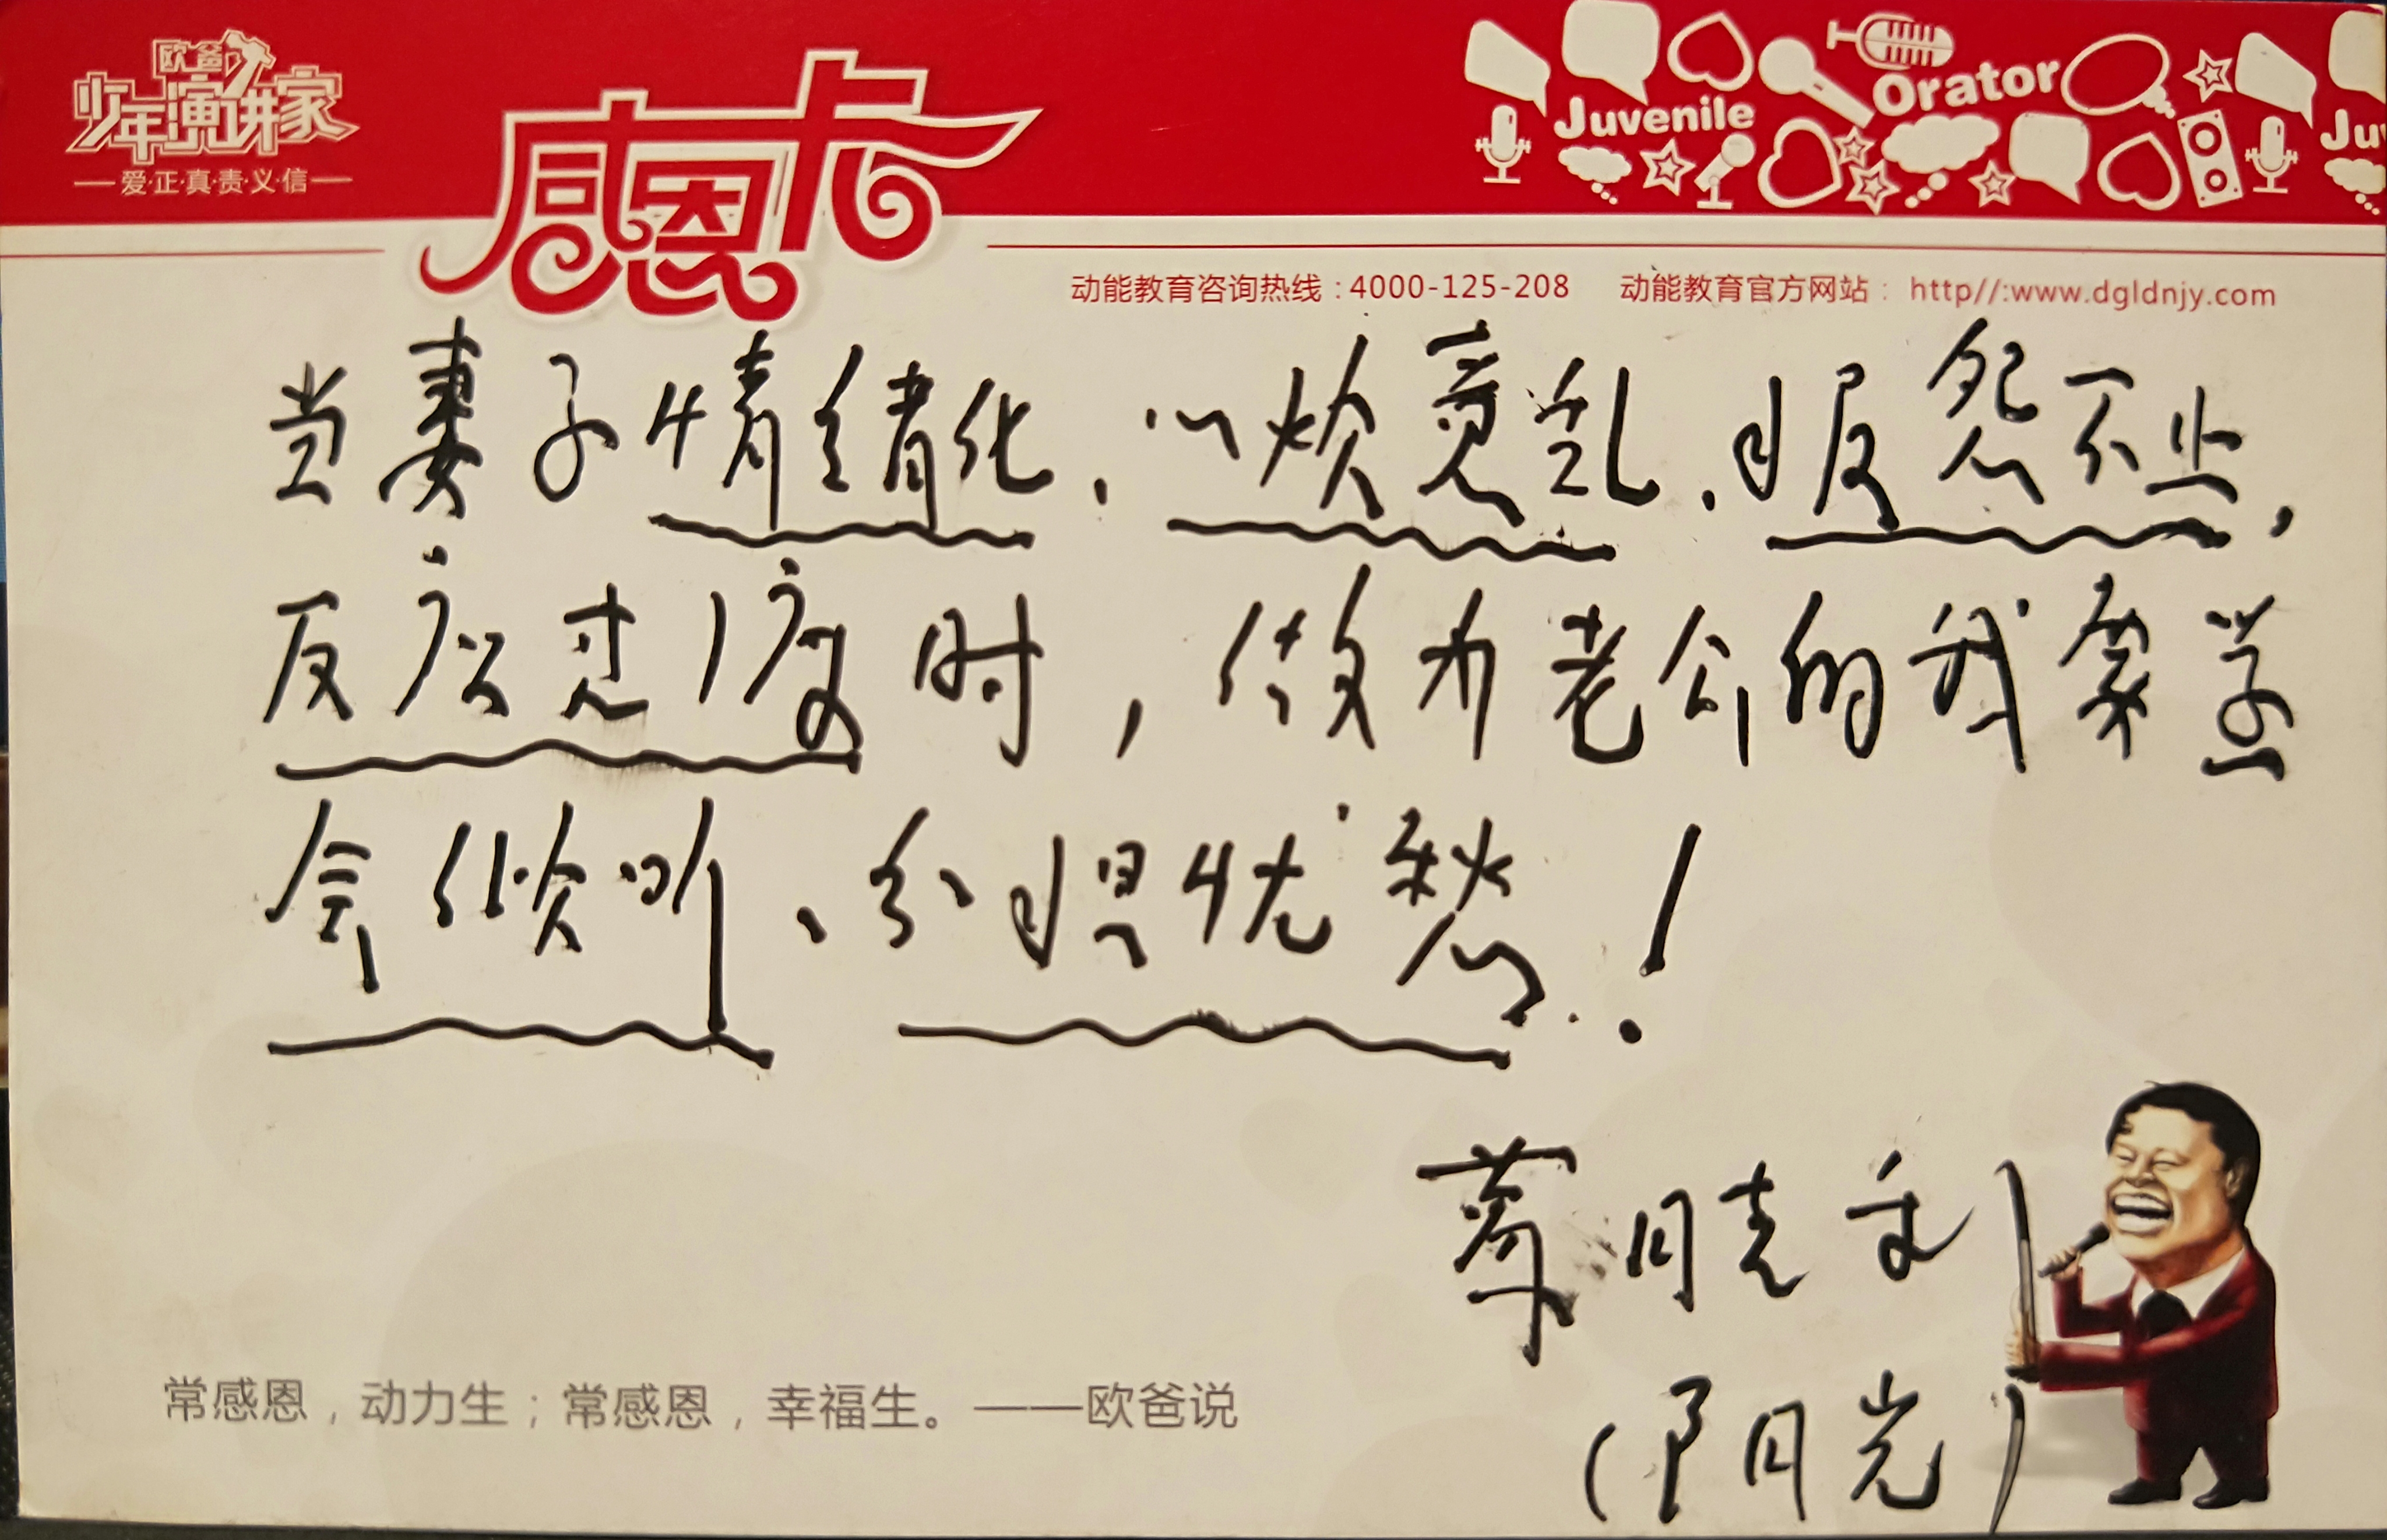 欧爸
少年演讲家
爱·正·真·责·义·信
感恩卡
Juvenile Orator Ju
动能教育咨询热线:4000-125-208 动能教育官方网站: http//:www.dgldnjy.com
当妻子情绪化、心烦意乱、报怨不止,
反应过度时,做为老公的我要学
会倾听、分担忧愁!
蔡晓利
(阳光)
常感恩,动力生;常感恩,幸福生。——欧爸说